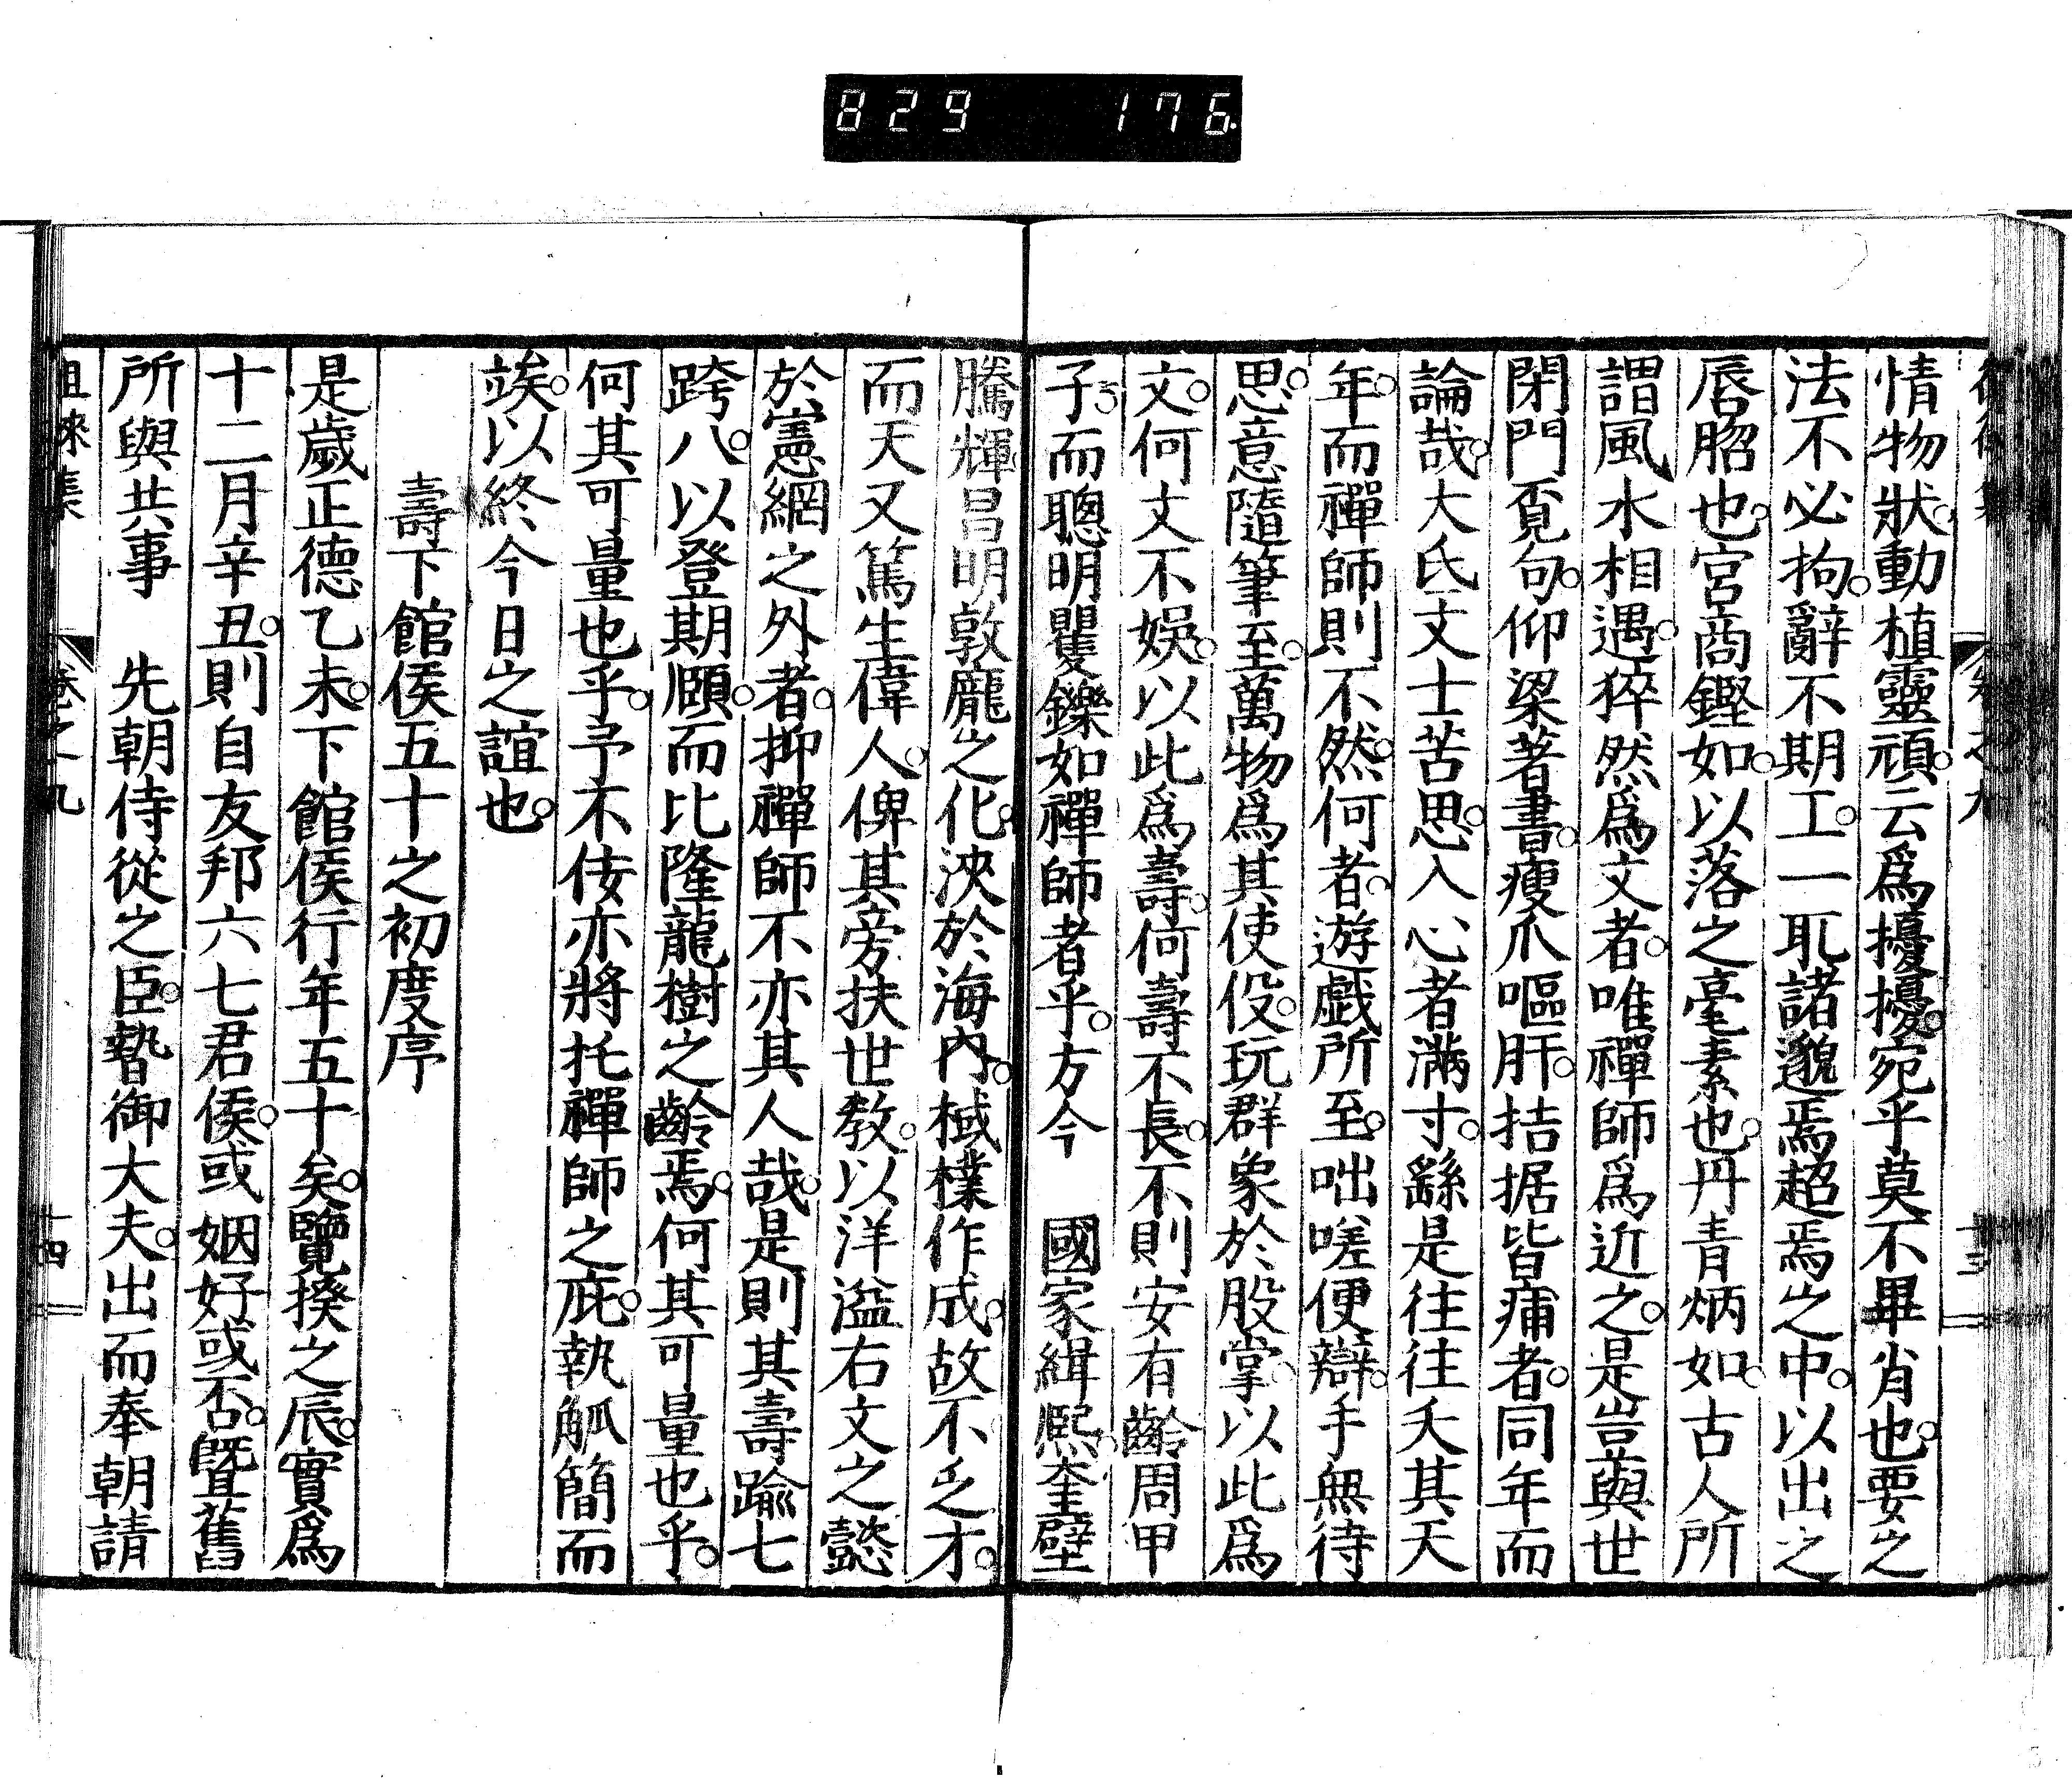 829 176.
情物狀。動植靈頑。云爲擾擾。宛乎莫不畢肖也。要之
法不必拘。辭不期工。一取諸邈焉超焉之中。以出之
唇䏚也。宮商鏗如。以落之毫素也。丹青炳如。古人所
謂風水相遇。猝然爲文者。唯禪師爲近之。是豈與世
閉門覓句。仰梁著書。瘦爪嘔肝。拮据皆痡者。同年而
論哉。大氐文士苦思。入心者滿寸。繇是往往夭其天
年。而禪師則不然。何者。遊戲所至。咄嗟便辯。手無待
思。意隨筆至。萬物爲其使役。玩群象於股掌。以此爲
文。何文不娛。以此爲壽。何壽不長。不則安有齡周甲
子。而聰明矍鑠如禪師者乎。方今 國家緝熙。奎壁
騰輝昌明敦龐之化。浹於海內。棫樸作成。故不乏才。
而天又篤生偉人。俾其旁扶世教。以洋溢右文之懿
於憲網之外者。抑禪師不亦其人哉。是則其壽踰七
跨八。以登期頤。而比隆龍樹之齡焉。何其可量也乎。
何其可量也乎。予不佞亦將托禪師之庇。執觚簡而
竢。以終今日之誼也。
壽下館侯五十之初度序
是歲正德乙未。下館侯行年五十矣。覽揆之辰。實爲
十二月辛丑。則自友邦六七君侯。或姻好或否。暨舊
所與共事 先朝侍從之臣。暬御大夫。出而奉朝請
徂徠集 卷之九 十四